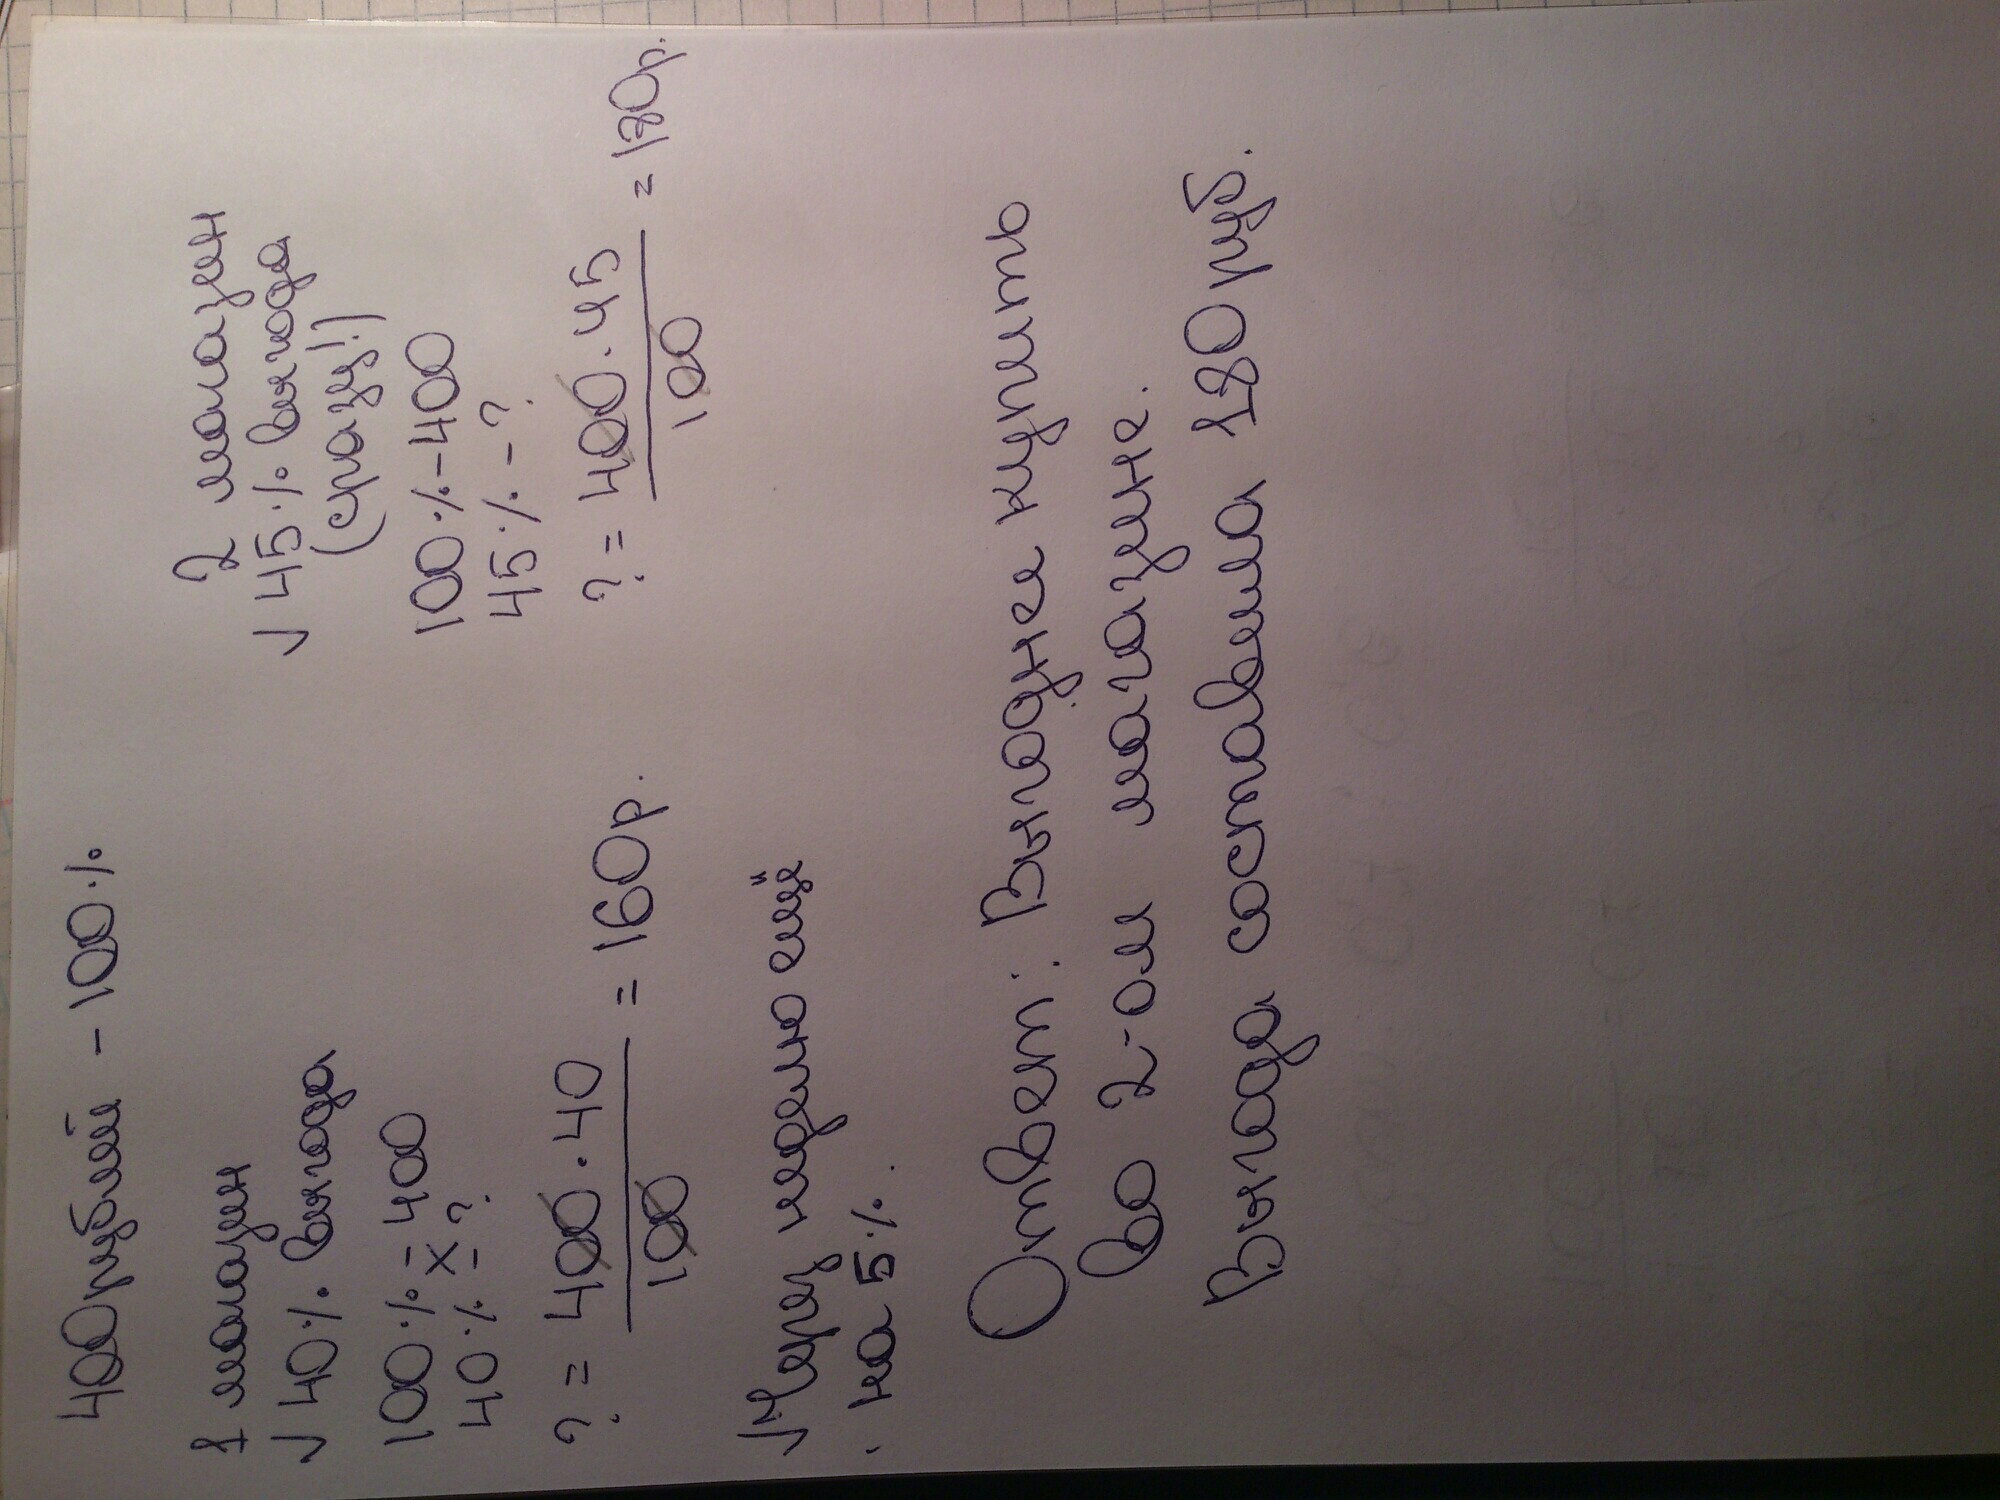 400 рублей - 100%
1 магазин
√ 40% выгода
100% - 400
x
40% - ?
? = 400 · 40 / 100 = 160р.
√ Через неделю ещё
на 5%.
2 магазин
√ 45% выгода
(сразу!)
100% - 400
45% - ?
? = 400 · 45 / 100 = 180р.
Ответ: Выгоднее купить
во 2-ом магазине.
Выгода составила 180 руб.